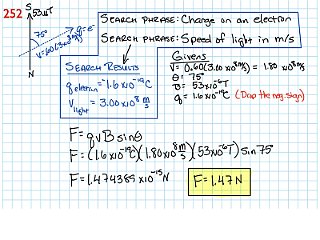 252
S 53uT
75°
q=e⁻
V=0.60(3.00x10⁸m/s)
N
SEARCH PHRASE: Charge on an electron
SEARCH PHRASE: Speed of light in m/s
SEARCH RESULTS
q electron = -1.6x10⁻¹⁹C
V light = 3.00x10⁸ m/s
Givens
V= 0.60(3.00x10⁸m/s) = 1.80 x10⁸m/s
θ= 75°
B= 53x10⁻⁶T
q= 1.6x10⁻¹⁹C (Drop the neg. sign)
F= qvBsinθ
F= (1.6x10⁻¹⁹C)(1.80x10⁸ m/s)(53x10⁻⁶T)sin75°
F= 1.474389x10⁻¹⁵N
F= 1.47N